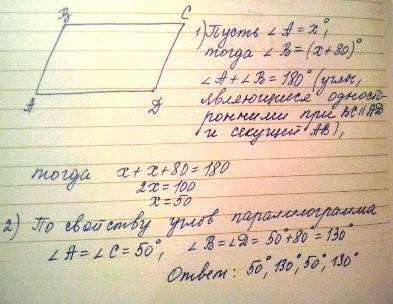 B C
A D
1) Пусть ∠A = x°,
тогда ∠B = (x+80)°
∠A + ∠B = 180° (углы,
являющиеся односто-
ронними при BC∥AD
и секущей AB),
тогда x + x + 80 = 180
2x = 100
x = 50
2) По свойству углов параллнлограмма
∠A = ∠C = 50°, ∠B = ∠D = 50° + 80° = 130°
Ответ: 50°, 130°, 50°, 130°